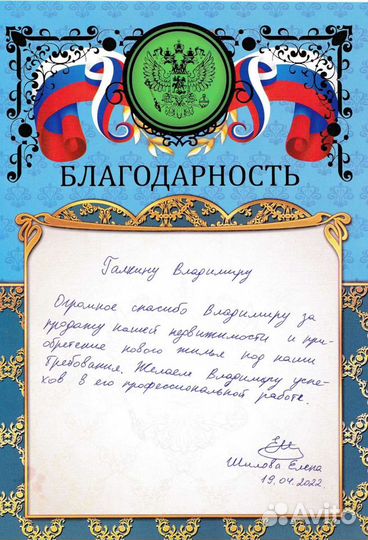 БЛАГОДАРНОСТЬ
Галкину Владимиру
Огромное спасибо Владимиру за
продажу нашей недвижимости и при-
обретение нового жилья под наши
требования. Желаем Владимиру успе-
хов в его профессиональной работе.
Шилова Елена
19.04.2022
Avito